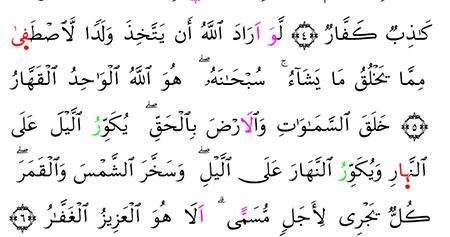 كَٰذِبٌ كَفَّارٌ ﴿٤﴾ لَّوَ اَرَادَ ٱللَّهُ أَن يَتَّخِذَ وَلَدًا لَّٱصْطَفٜىٰ
مِمَّا يَخْلُقُ مَا يَشَآءُ ۚ سُبْحَٰنَهُۥ ۖ هُوَ ٱللَّهُ ٱلْوَٰحِدُ ٱلْقَهَّارُ
﴿٥﴾ خَلَقَ ٱلسَّمَٰوَٰتِ وَٱلَارْضَ بِٱلْحَقِّ ۖ يُكَوِّرُ ٱلَّيْلَ عَلَى
ٱلنَّهٜارِ وَيُكَوِّرُ ٱلنَّهَارَ عَلَى ٱلَّيْلِ ۖ وَسَخَّرَ ٱلشَّمْسَ وَٱلْقَمَرَ ۖ
كُلٌّ يَجْرِى لِأَجَلٍ مُّسَمًّى ۗ اَلَا هُوَ ٱلْعَزِيزُ ٱلْغَفَّٰرُ ﴿٦﴾